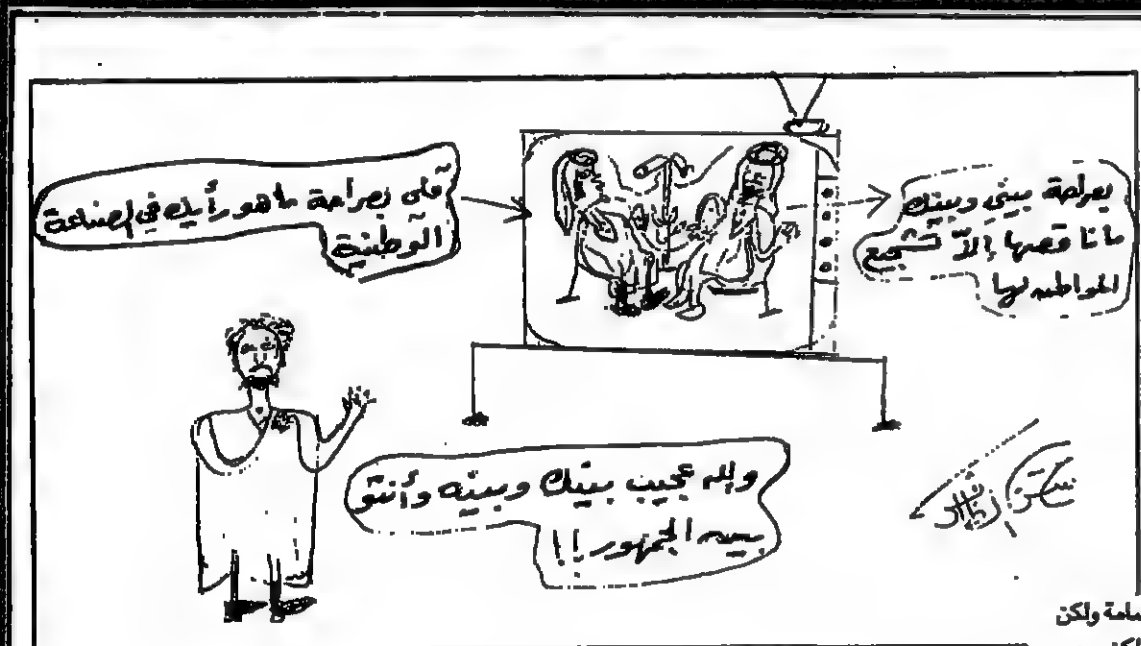 قلي بصراحة ما هو رأيك في الصناعة
الوطنية
بصراحة بيني وبينك
ما ناقصها إلاّ تشجيع
المواطن لها
والله عجيب بينك وبينه وأنتو
بين الجمهور !!
ولكن